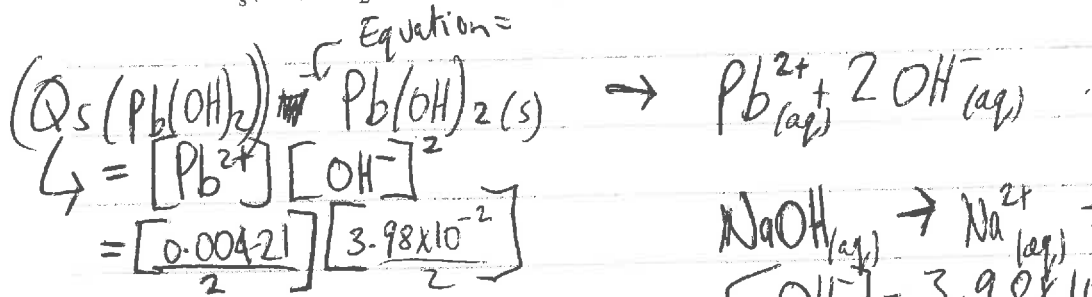 Equation=
(Qs(Pb(OH)₂)) Pb(OH)₂(s) → Pb²⁺(aq) + 2 OH⁻(aq)
↳ = [Pb²⁺][OH⁻]²
= [0.00421/2][3.98x10⁻²/2]
NaOH(aq) → Na²⁺(aq)
[OH⁻] = 3.98x1